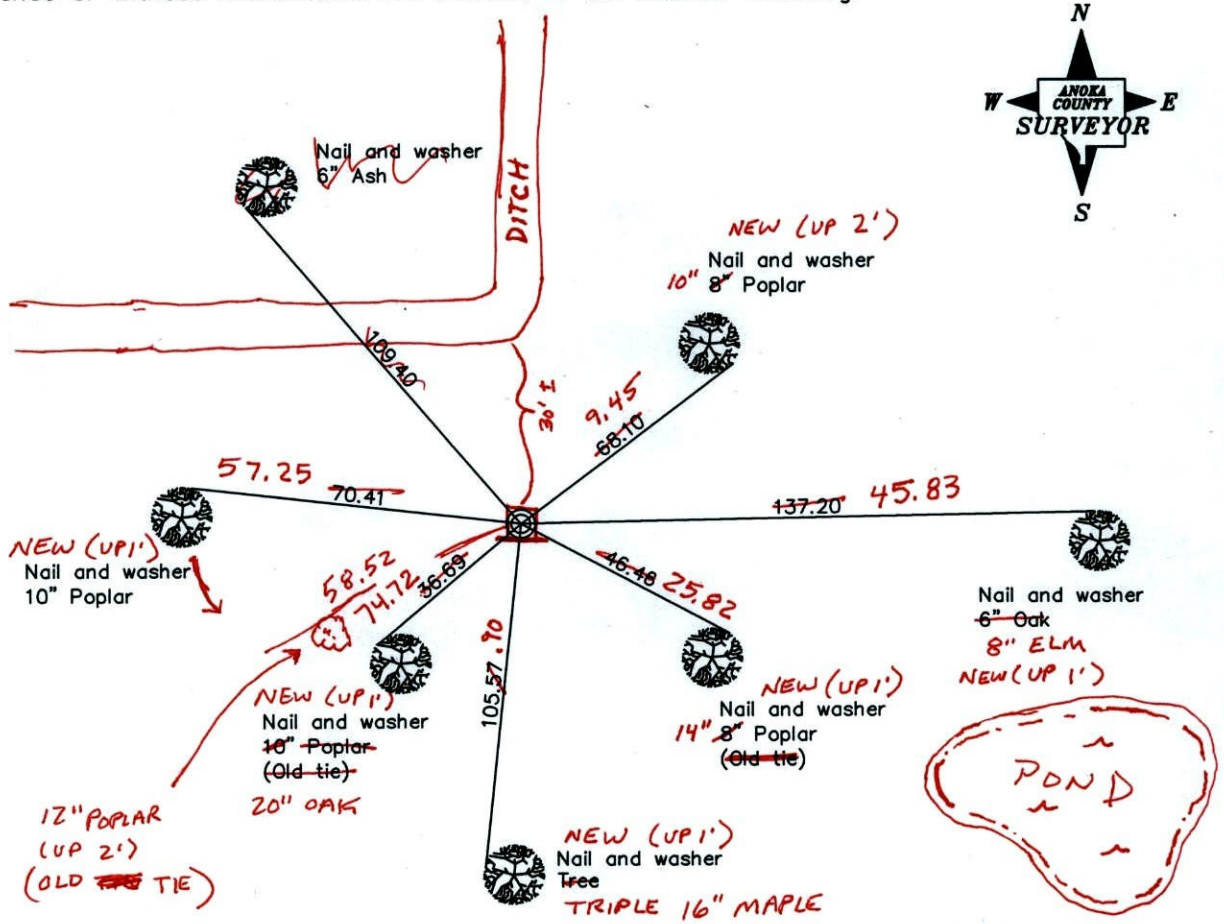 N
W ANOKA E
COUNTY
SURVEYOR
S
Nail and washer
6" Ash
DITCH
NEW (UP 2')
Nail and washer
10" 8" Poplar
109.40
30' ±
9.45
68.10
57.25 70.41
137.20 45.83
NEW (UP 1')
Nail and washer
10" Poplar
58.52
74.72
36.69
46.48 25.82
105.57 .90
Nail and washer
6" Oak
8" ELM
NEW (UP 1')
NEW (UP 1')
Nail and washer
10" Poplar
(Old tie)
20" OAK
NEW (UP 1')
Nail and washer
14" 8" Poplar
(Old tie)
POND
12" POPLAR
(UP 2')
(OLD TIE)
NEW (UP 1')
Nail and washer
Tree
TRIPLE 16" MAPLE